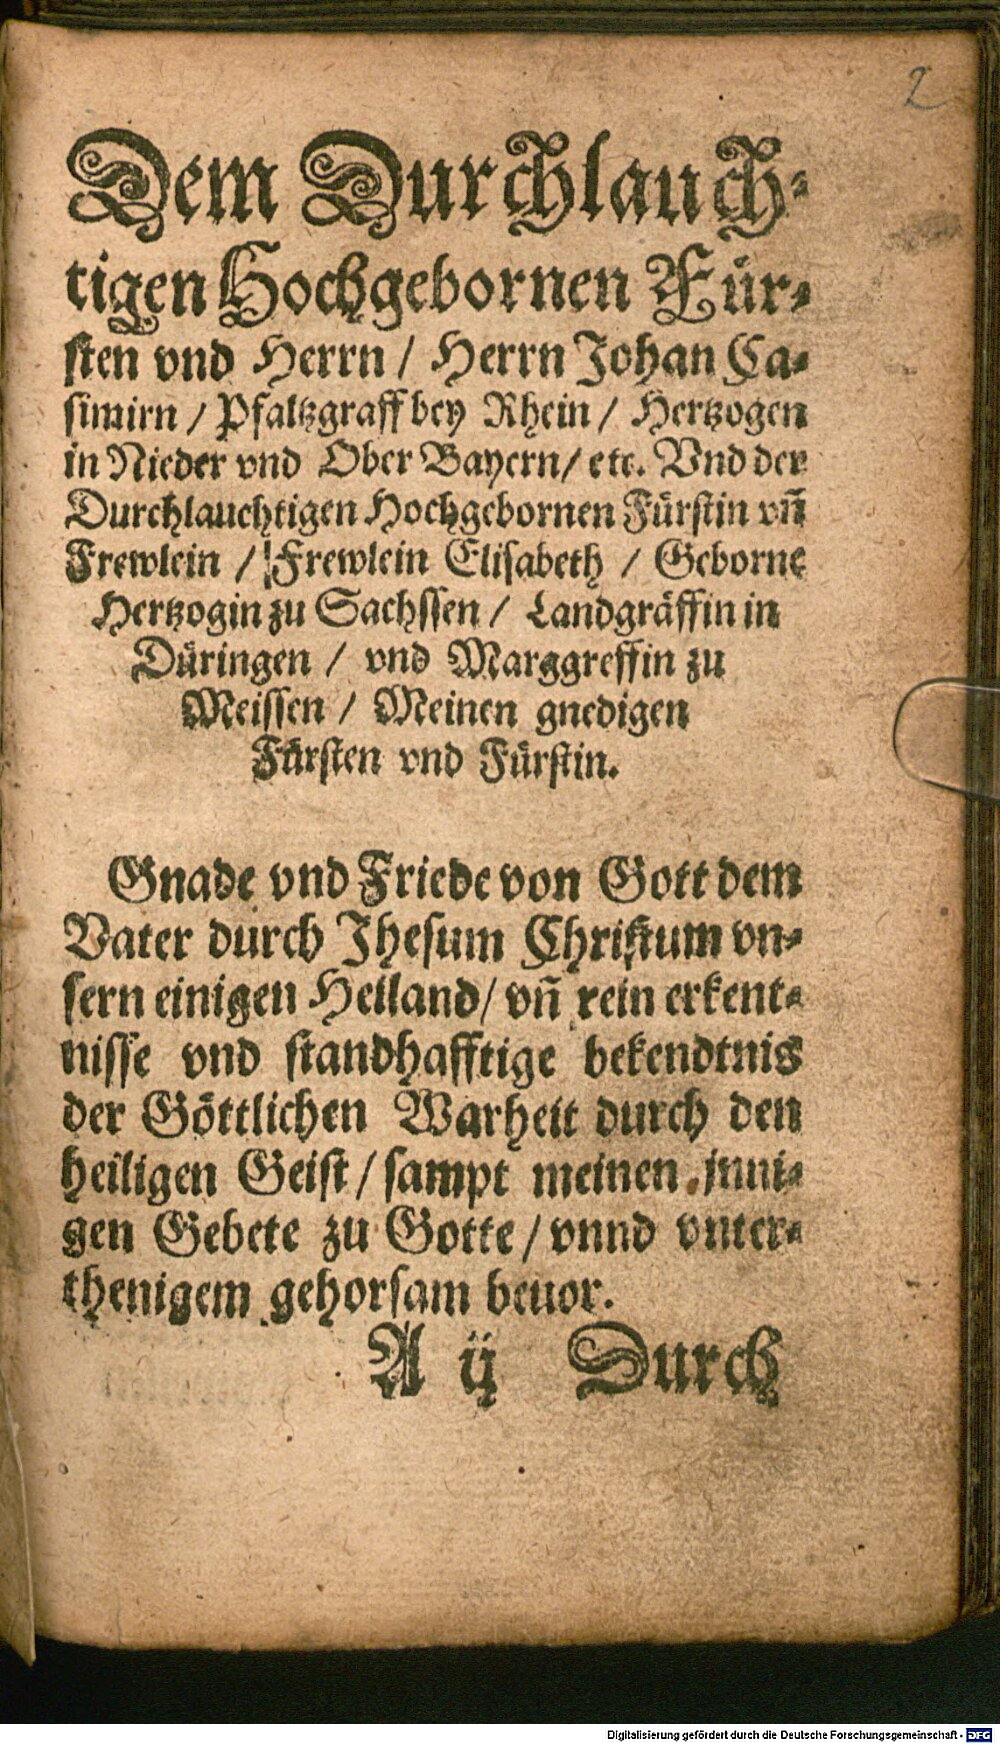 2
Dem Durchlauch-
tigen Hochgebornen Für-
sten vnd Herrn / Herrn Johan Ca-
simirn / Pfaltzgraff bey Rhein / Hertzogen
in Nieder vnd Ober Bayern / etc. Vnd der
Durchlauchtigen Hochgebornen Fürstin vñ
Frewlein / Frewlein Elisabeth / Geborne
Hertzogin zu Sachssen / Landgräffin in
Düringen / vnd Marggreffin zu
Meissen / Meinen gnedigen
Fürsten vnd Fürstin.
Gnade vnd Friede von Gott dem
Vater durch Jhesum Christum vn-
sern einigen Heiland / vñ rein erkent-
nisse vnd standhafftige bekendtnis
der Göttlichen Warheit durch den
heiligen Geist / sampt meinen inni-
gen Gebete zu Gotte / vnnd vnter-
thenigem gehorsam beuor.
A ij Durch
Digitalisierung gefördert durch die Deutsche Forschungsgemeinschaft - DFG